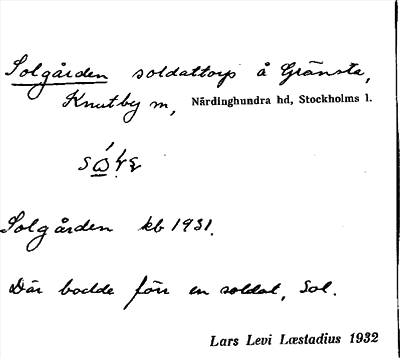 Solgården soldattorp å Gränsta,
Knutby sn, Närdinghundra hd, Stockholms l.
Solgården kb 1931.
Där bodde förr en soldat, Sol.
Lars Levi Læstadius 1932